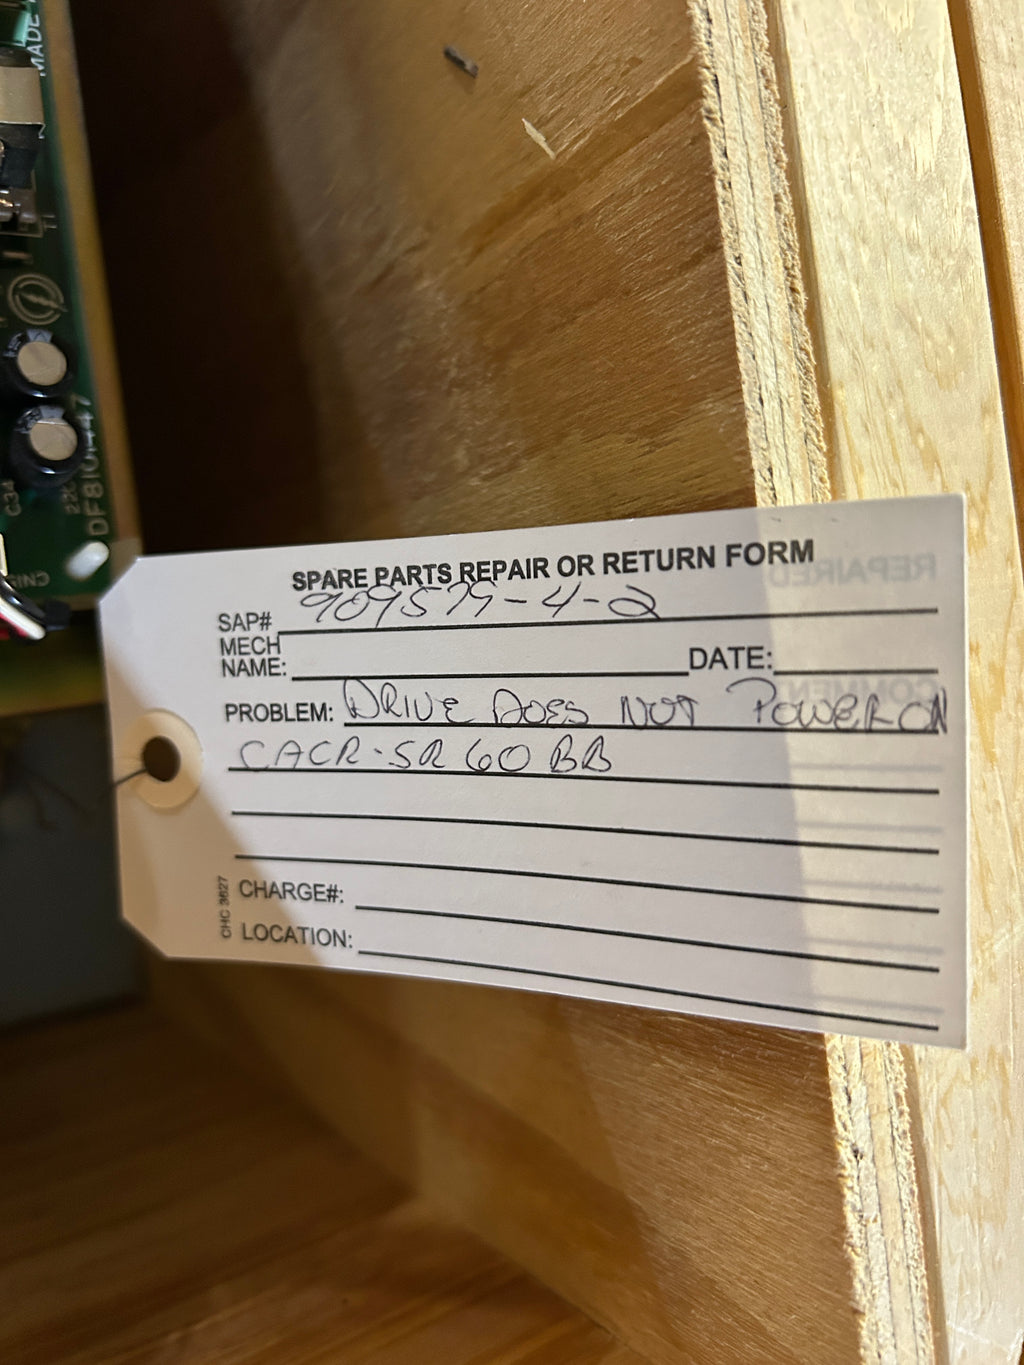 MADE
C34
220
DF8101447
CN15
SPARE PARTS REPAIR OR RETURN FORM
SAP# 909579-4-2
MECH
NAME:
DATE:
PROBLEM: DRIVE DOES NOT POWER ON
CACR-SR60BB
CHARGE#:
LOCATION:
CHC 3627
REPAIRED